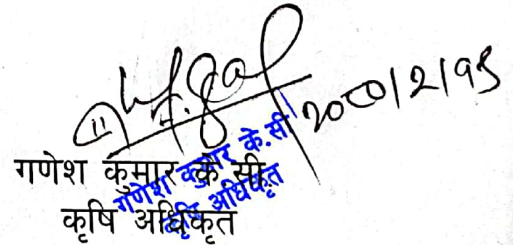 २०८०/२/१५
गणेश कुमार के.सी.
कृषि अधिकृत
गणेश कुमार के.सी.
कृषि अधिकृत